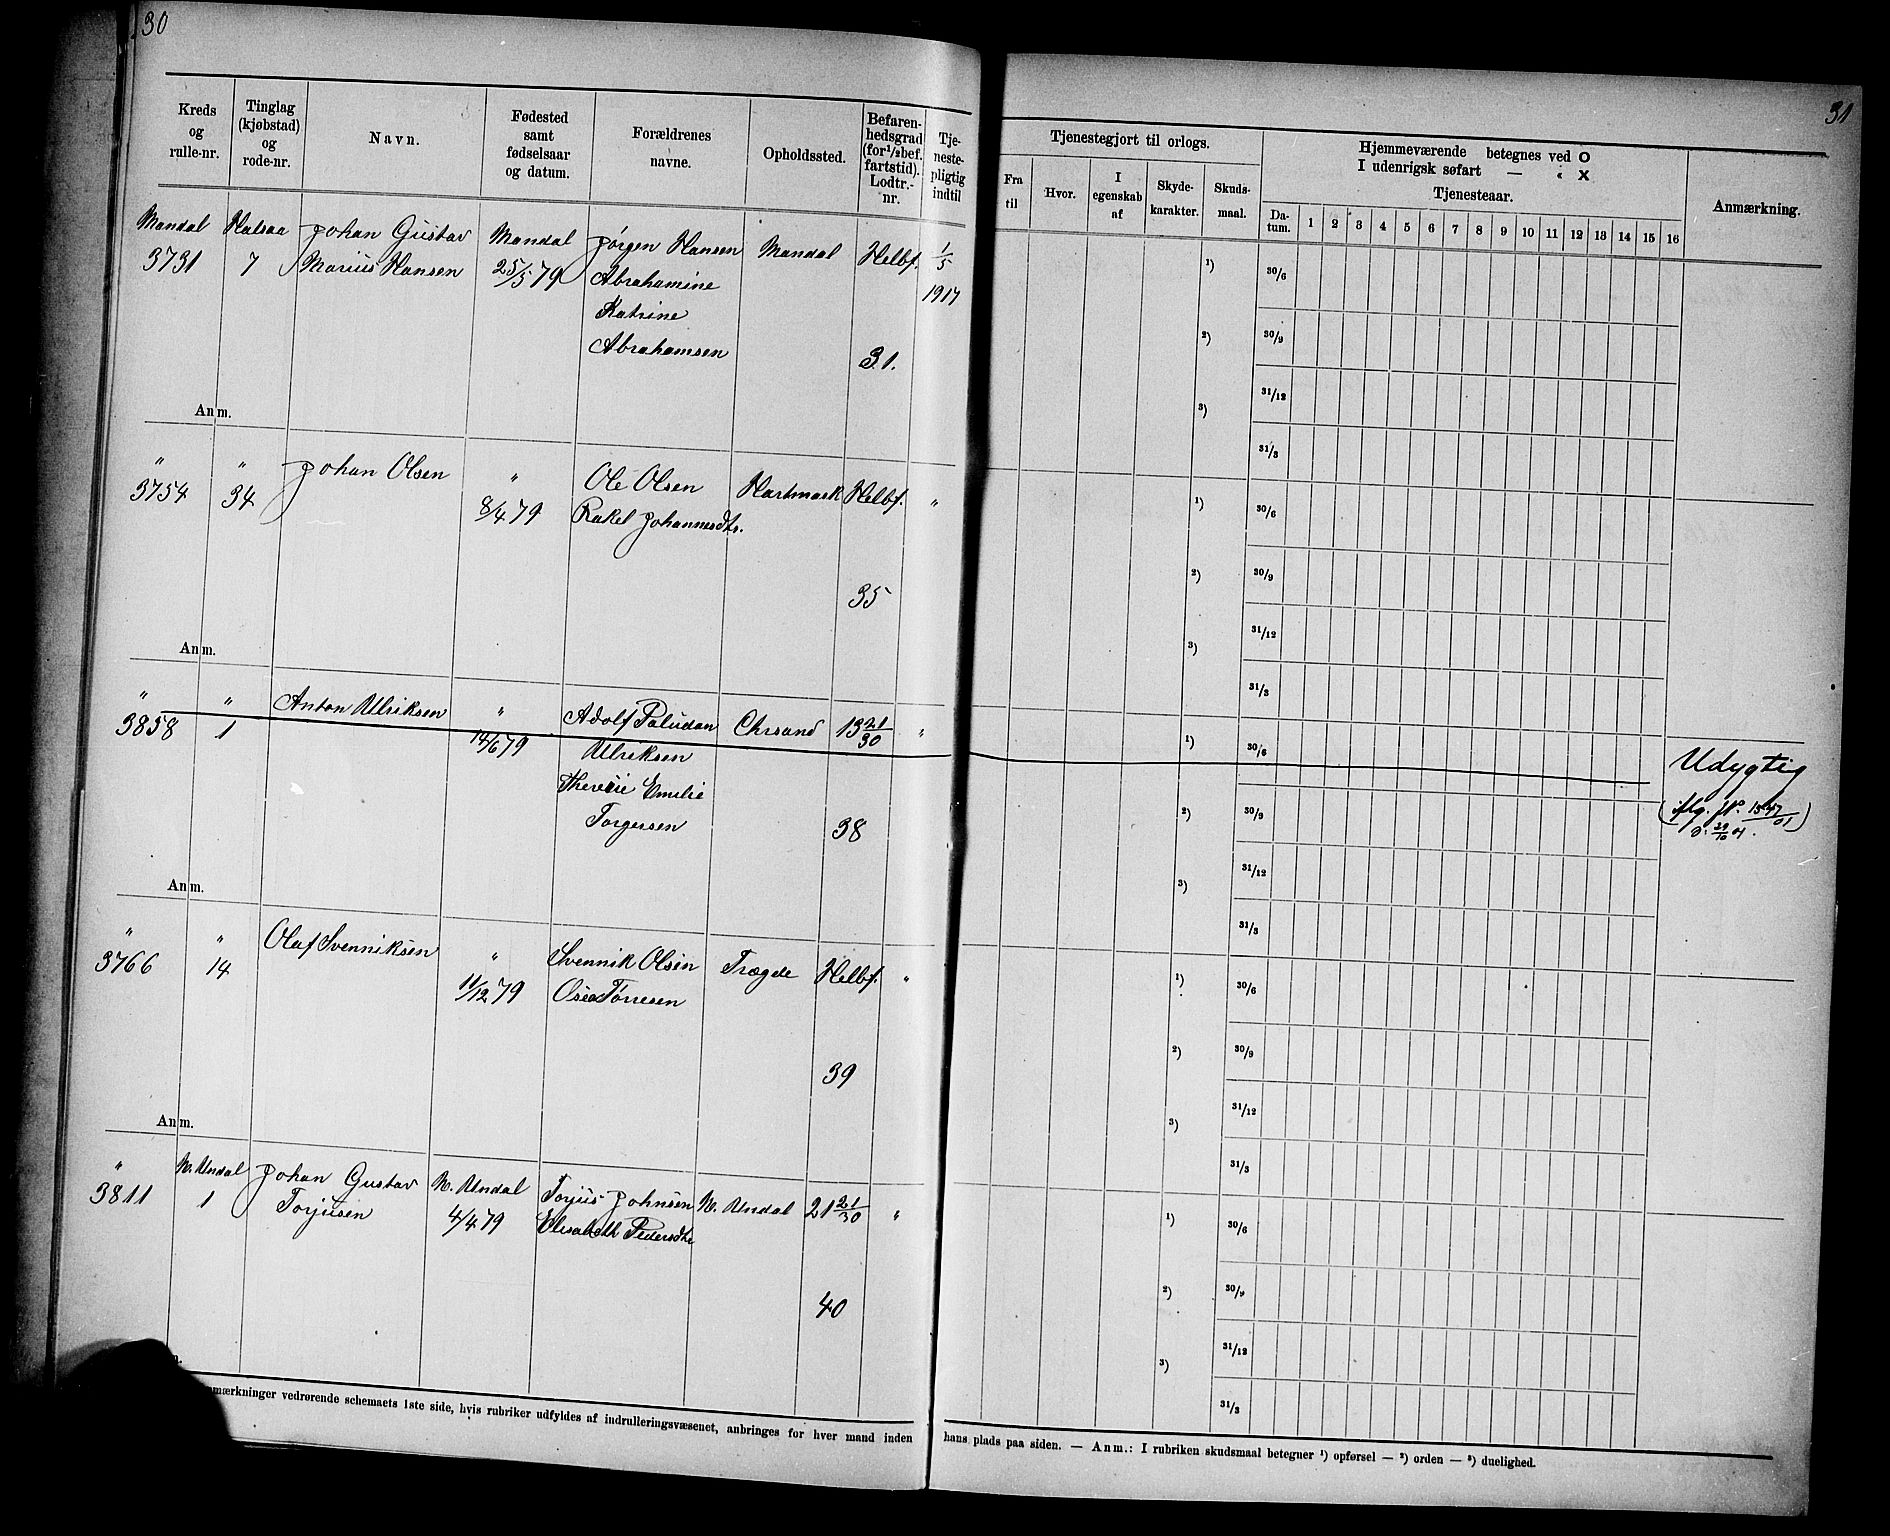 30
Kreds og rulle-nr.
Tinglag (kjøbstad) og rode-nr.
Navn.
Fødested samt fødselsaar og datum.
Forældrenes navne.
Opholdssted.
Befaren-hedsgrad (for ½ bef. fartstid). Lodtr.-nr.
Tje-neste-pligtig indtil
Mandal
3731
Halsaa
7
Johan Gustav
Marius Hansen
Mandal
25/5 79
Jørgen Hansen
Abrahamine
Katrine
Abrahamsen
Mandal
Helbf.
31.
1/5
1917
Anm.
"
3754
"
34
Johan Olsen
"
8/4 79
Ole Olsen
Rakel Johannesdtr.
Hartmark
Helbf.
35
"
Anm.
"
3858
"
1
Anton Ulriksen
"
14/6 79
Adolf Paludan
Ulriksen
Theresie Emilie
Torgersen
Chrsand
13 21/30
38
"
Anm.
"
3766
"
14
Olaf Svenniksen
"
11/12 79
Svennik Olsen
Osea Tørresen
Trægde
Helbf.
39
"
Anm.
"
3811
N. Undal
1
Johan Gustav
Torjusen
N. Undal
4/4 79
Torjus Johnsen
Elisabeth Pedersdtr
N. Undal
21 21/30
40
"
mærkninger vedrørende schemaets 1ste side, hvis rubriker udfyldes af indrulleringsvæsenet, anbringes for hver mand inden
31
Tjenestegjort til orlogs.
Fra til
Hvor.
I egenskab af
Skyde-karakter.
Skuds-maal.
Hjemmeværende betegnes ved O
I udenrigsk søfart — " X
Tjenesteaar.
Da-tum.
1 2 3 4 5 6 7 8 9 10 11 12 13 14 15 16
Anmærkning.
1) 30/6
2) 30/9
31/12
3)
31/3
1) 30/6
2) 30/9
31/12
3)
31/3
1) 30/6
Udygtig
2) 30/9
31/12
3)
31/3
1) 30/6
2) 30/9
31/12
3)
31/3
1) 30/6
2) 30/9
31/12
3)
31/3
hans plads paa siden. — Anm.: I rubriken skudsmaal betegner ¹) opførsel — ²) orden — ³) duelighed.